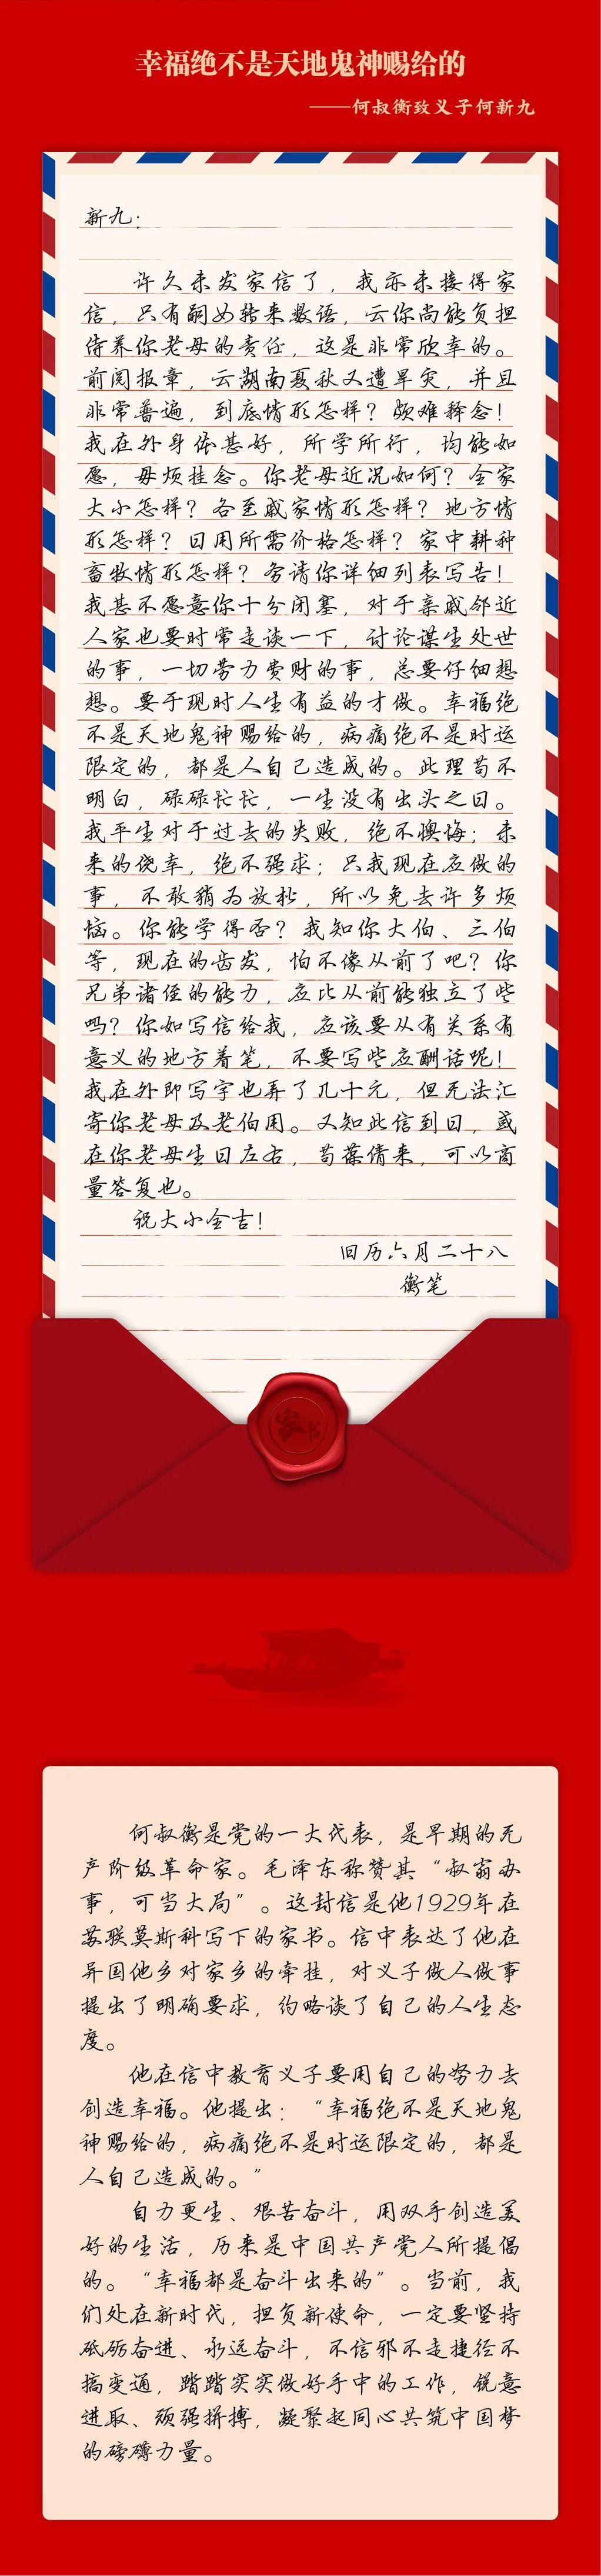 幸福绝不是天地鬼神赐给的
——何叔衡致义子何新九
新九：
许久未发家信了，我亦未接得家
信，只有嗣女转来数语，云你尚能负担
侍养你老母的责任，这是非常欣幸的。
前阅报章，云湖南夏秋又遭旱灾，并且
非常普遍，到底情形怎样？颇难释念！
我在外身体甚好，所学所行，均能如
愿，毋烦挂念。你老母近况如何？全家
大小怎样？各至戚家情形怎样？地方情
形怎样？日用所需价格怎样？家中耕种
畜牧情形怎样？务请你详细列表写告！
我甚不愿意你十分闭塞，对于亲戚邻近
人家也要时常走谈一下，讨论谋生处世
的事，一切劳力费财的事，总要仔细想
想。要于现时人生有益的才做。幸福绝
不是天地鬼神赐给的，病痛绝不是时运
限定的，都是人自己造成的。此理苟不
明白，碌碌忙忙，一生没有出头之日。
我平生对于过去的失败，绝不懊悔；未
来的侥幸，绝不强求；只我现在应做的
事，不敢稍为放松，所以免去许多烦
恼。你能学得否？我知你大伯、三伯
等，现在的齿发，怕不像从前了吧？你
兄弟诸侄的能力，应比从前能独立了些
吗？你如写信给我，应该要从有关系有
意义的地方着笔，不要写些应酬话呢！
我在外即写字也弄了几十元，但无法汇
寄你老母及老伯用。又知此信到日，或
在你老母生日左右，苟葆倩来，可以商
量答复也。
祝大小全吉！
旧历六月二十八
衡笔
家书
何叔衡是党的一大代表，是早期的无
产阶级革命家。毛泽东称赞其“叔翁办
事，可当大局”。这封信是他1929年在
苏联莫斯科写下的家书。信中表达了他在
异国他乡对家乡的牵挂，对义子做人做事
提出了明确要求，约略谈了自己的人生态
度。
他在信中教育义子要用自己的努力去
创造幸福。他提出：“幸福绝不是天地鬼
神赐给的，病痛绝不是时运限定的，都是
人自己造成的。”
自力更生、艰苦奋斗，用双手创造美
好的生活，历来是中国共产党人所提倡
的。“幸福都是奋斗出来的”。当前，我
们处在新时代，担负新使命，一定要坚持
砥砺奋进、永远奋斗，不信邪不走捷径不
搞变通，踏踏实实做好手中的工作，锐意
进取、顽强拼搏，凝聚起同心共筑中国梦
的磅礴力量。